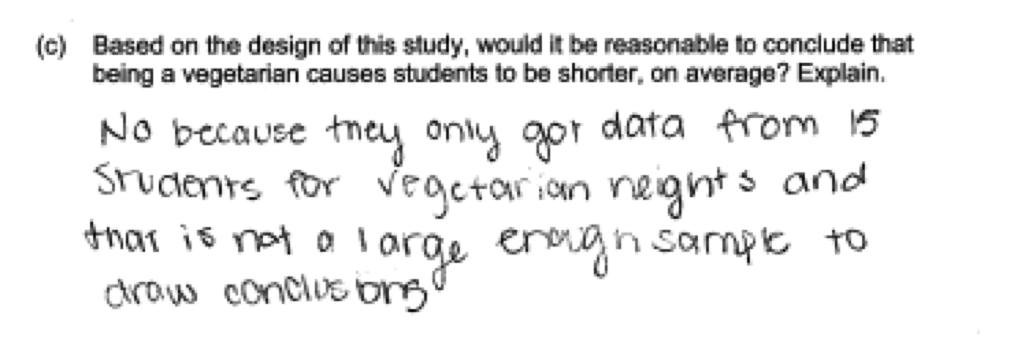 (c) Based on the design of this study, would it be reasonable to conclude that
being a vegetarian causes students to be shorter, on average? Explain.
No because they only got data from 15
Students for vegetarian heights and
that is not a large enough sample to
draw conclusions